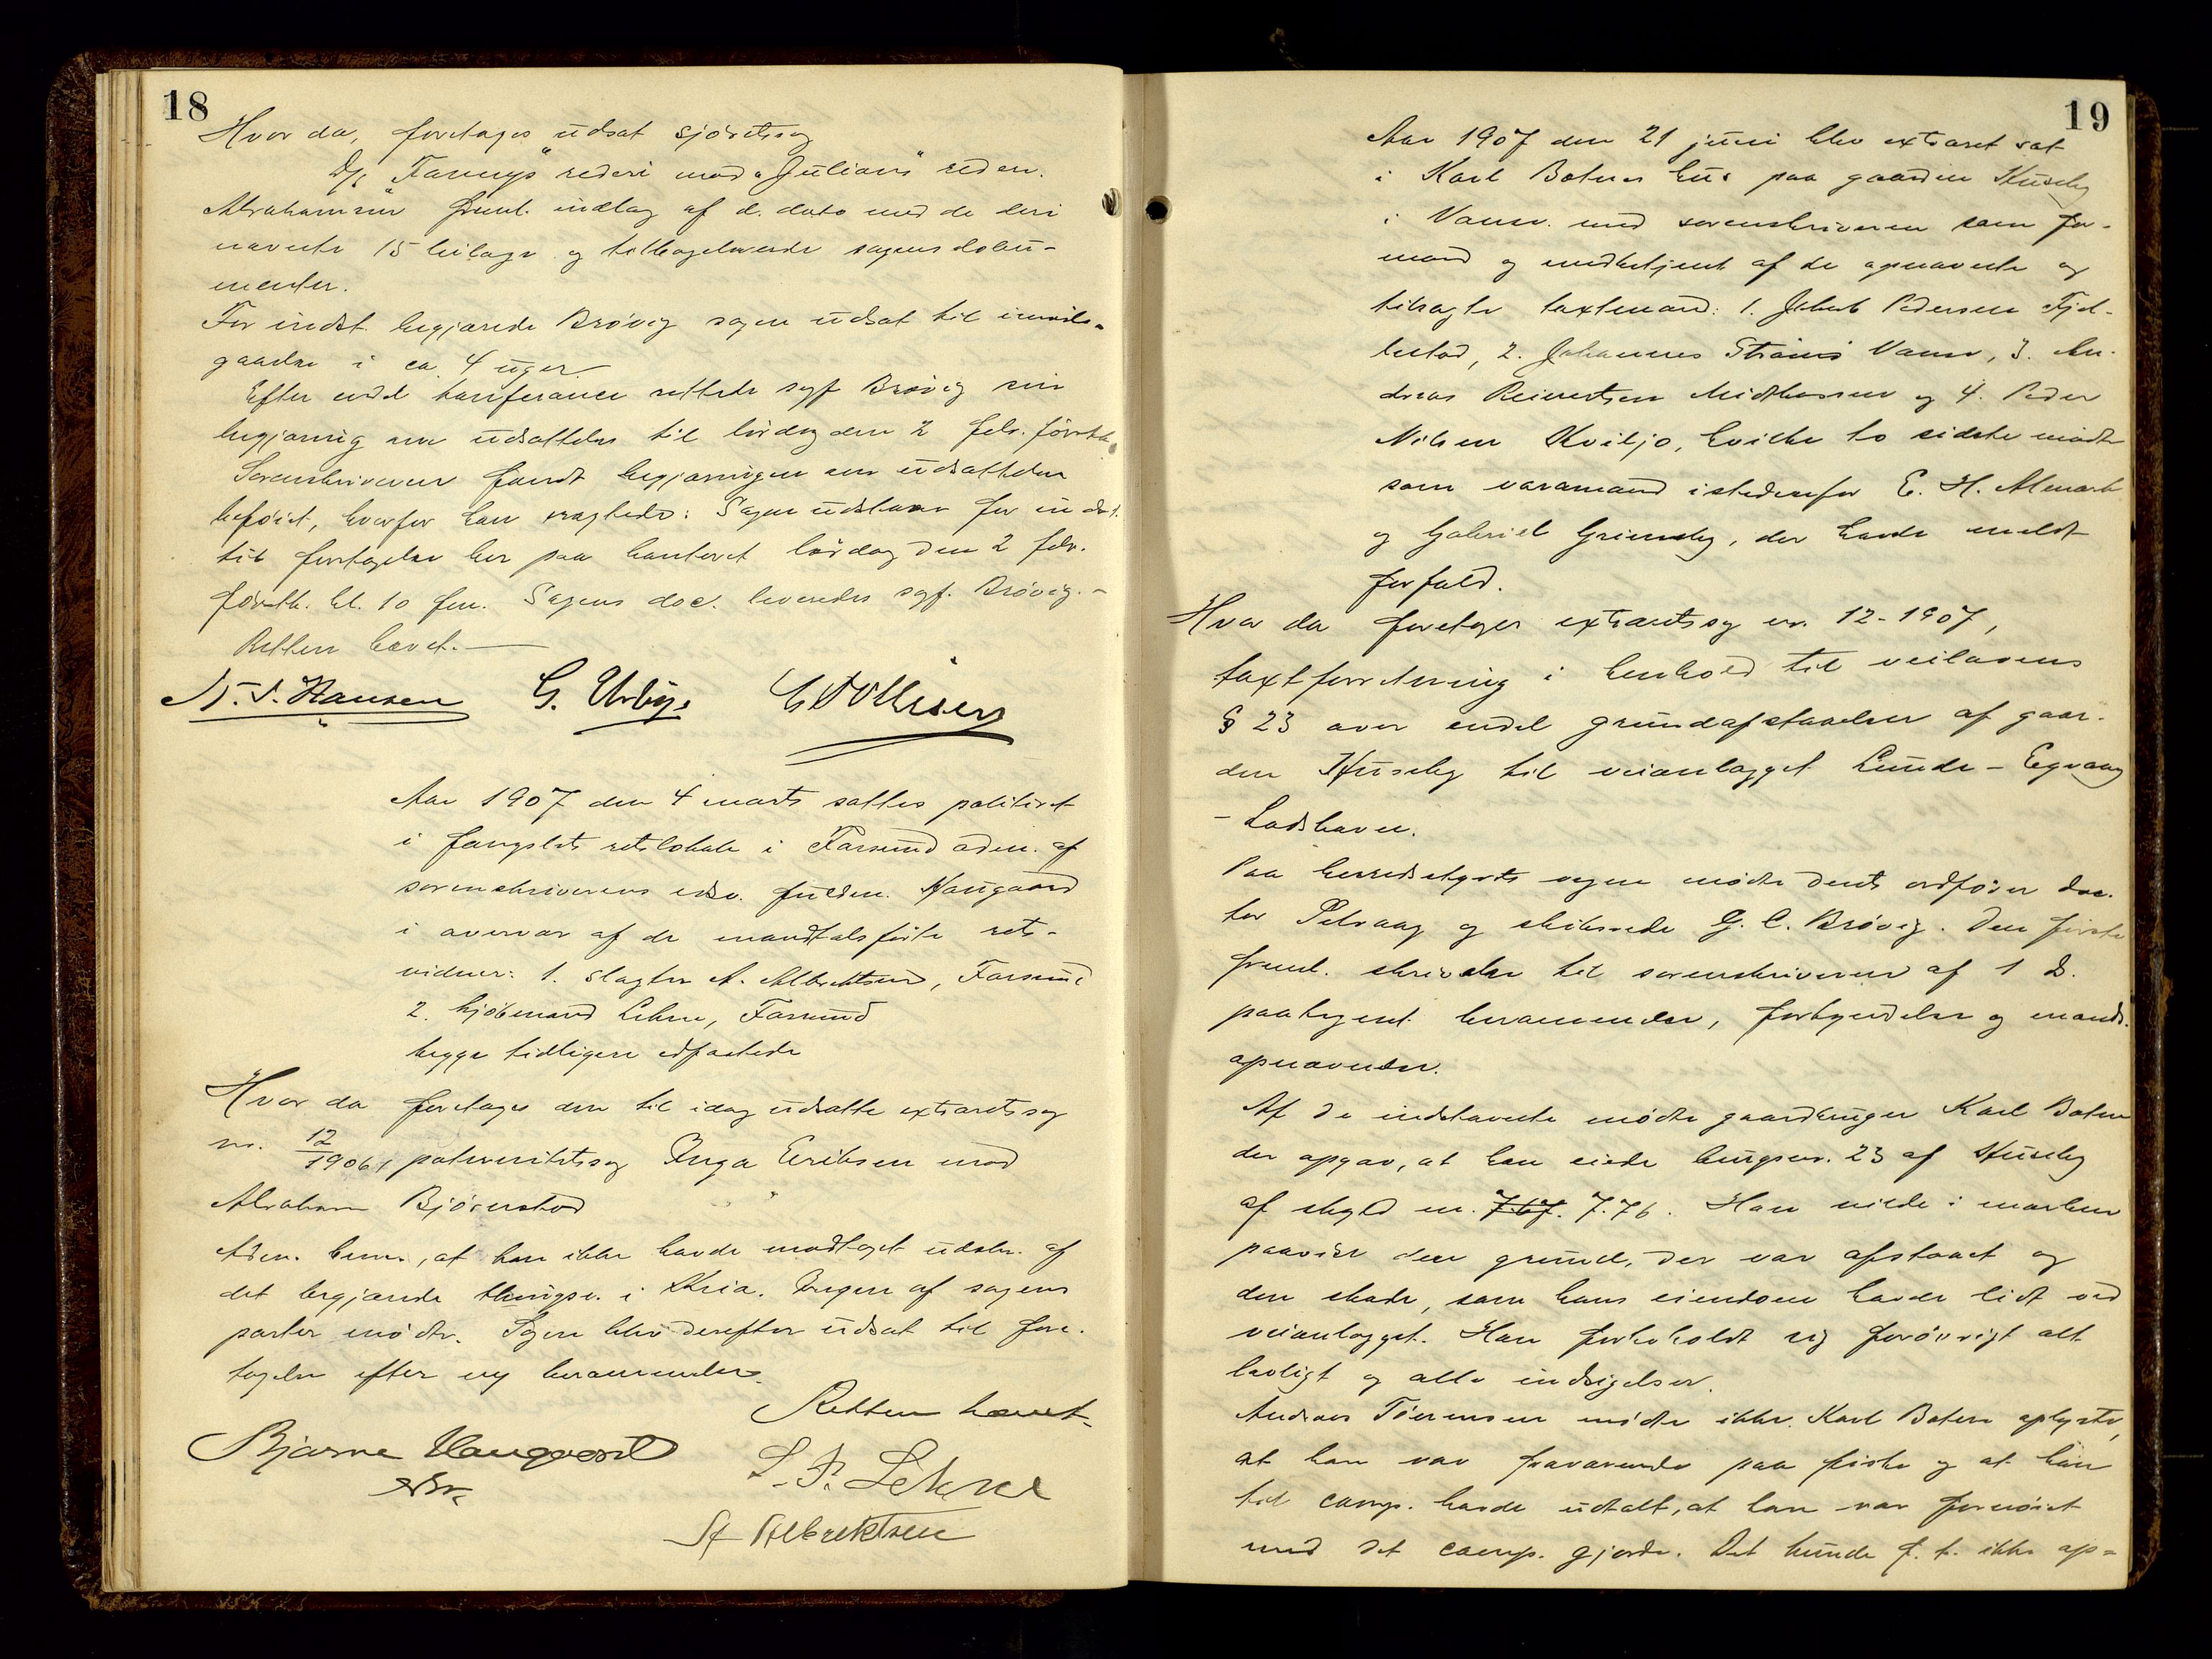 18
Hvor da, foretages udsat sjøretssag
D/s "Fannys" rederi mod "Julians" reder.
Abrahamsen freml. indlæg af d. dato med de deri
nævnte 15 bilage og tilbageleverede sagens doku-
menter.
For indst. begjærede Brøvig sagen udsat til imøde-
gaaelse i ca. 4 uger
Efter endel konferance rettede sagf Brøvig sin
begjæring om udsættelse til lørdag den 2 febr. førstk.
Sorenskriveren fandt begjæringen om udsættelse
beføiet, hvorfor han eragtede: Sagen udstaar for indst.
til foretagelse her paa kontoret lørdag den 2 febr.
førstk. kl. 10 fm. Sagens doc. leveredes sagf. Brøvig. -
Retten hævet.
N. S. Hansen G. Urbye
Aar 1907 den 4 marts sattes politiret
i fængslets retslokale i Farsund adm. af
sorenskriverens edsv. fuldm. Haugaard
i overvær af de mandtalsførte rets-
vidner: 1. slagter A. Albrektsen, Farsund
2. kjøbmand Lehne, Farsund
begge tidligere edfæstede
Hvor da foretages den til idag udsatte extraretssag
no. 12/1906, paternitetssag Inga Eriksen mod
Abraham Bjørnestad
Adm. bem., at han ikke havde modtaget udskr. af
det begjærede thingsv. i Kria. Ingen af sagens
parter mødte. Sagen blev derefter udsat til fore-
tagelse efter ny berammelse.
Retten hævet.
Bjarne Haugaard
edsv.
L. P. Lehne
A Albrektsen
19
Aar 1907 den 21 juni blev extraret sat
i Karl Botnes hus paa gaarden Huseby
i Vanse med sorenskriveren som for-
mand og medbetjent af de opnævnte og
tilsagte taxtmænd: 1. Jakob Pedersen Fjel-
lestad, 2. Johannes Strømø Vanse, 3. An-
dreas Reinertsen Midthassel og 4. Peder
Nilsen Kviljo, hvilke to sidste mødte
som varamænd istedenfor E. H. Almark
og Gabriel Grimsby, der havde meldt
forfald.
Hvor da foretages extraretssag no. 12-1907,
taxtforretning i henhold til veilovens
§ 23 over endel grundafstaaelser af gaar-
den Huseby til veianlægget Lunde - Egvaag
- Ladshavn.
Paa herredsstyrets vegne mødte dets ordfører doc-
tor Petvaag og skibsrede G. C. Brøvig. Den første
freml. skrivelse til sorenskriveren af 1 ds.
paategnet berammelse, forkyndelse og mands-
opnævnelse.
Af de indstævnte mødte gaardbruger Karl Botne
der opgav, at han eiede brugsno. 23 af Huseby
af skyld m. 7.67. 7.76. Han vilde i marken
paavise den grund, der var afstaaet og
den skade, som hans eiendom havde lidt ved
veianlægget. Han forbeholdt sig forøvrigt alt
lovligt og alle indsigelser.
Andreas Tønnensen mødte ikke. Karl Botne oplyste,
at han var fraværende paa fiske og at han
til comp. havde udtalt, at han var fornøiet
med det comp. gjorde. Det kunde f. t. ikke op=